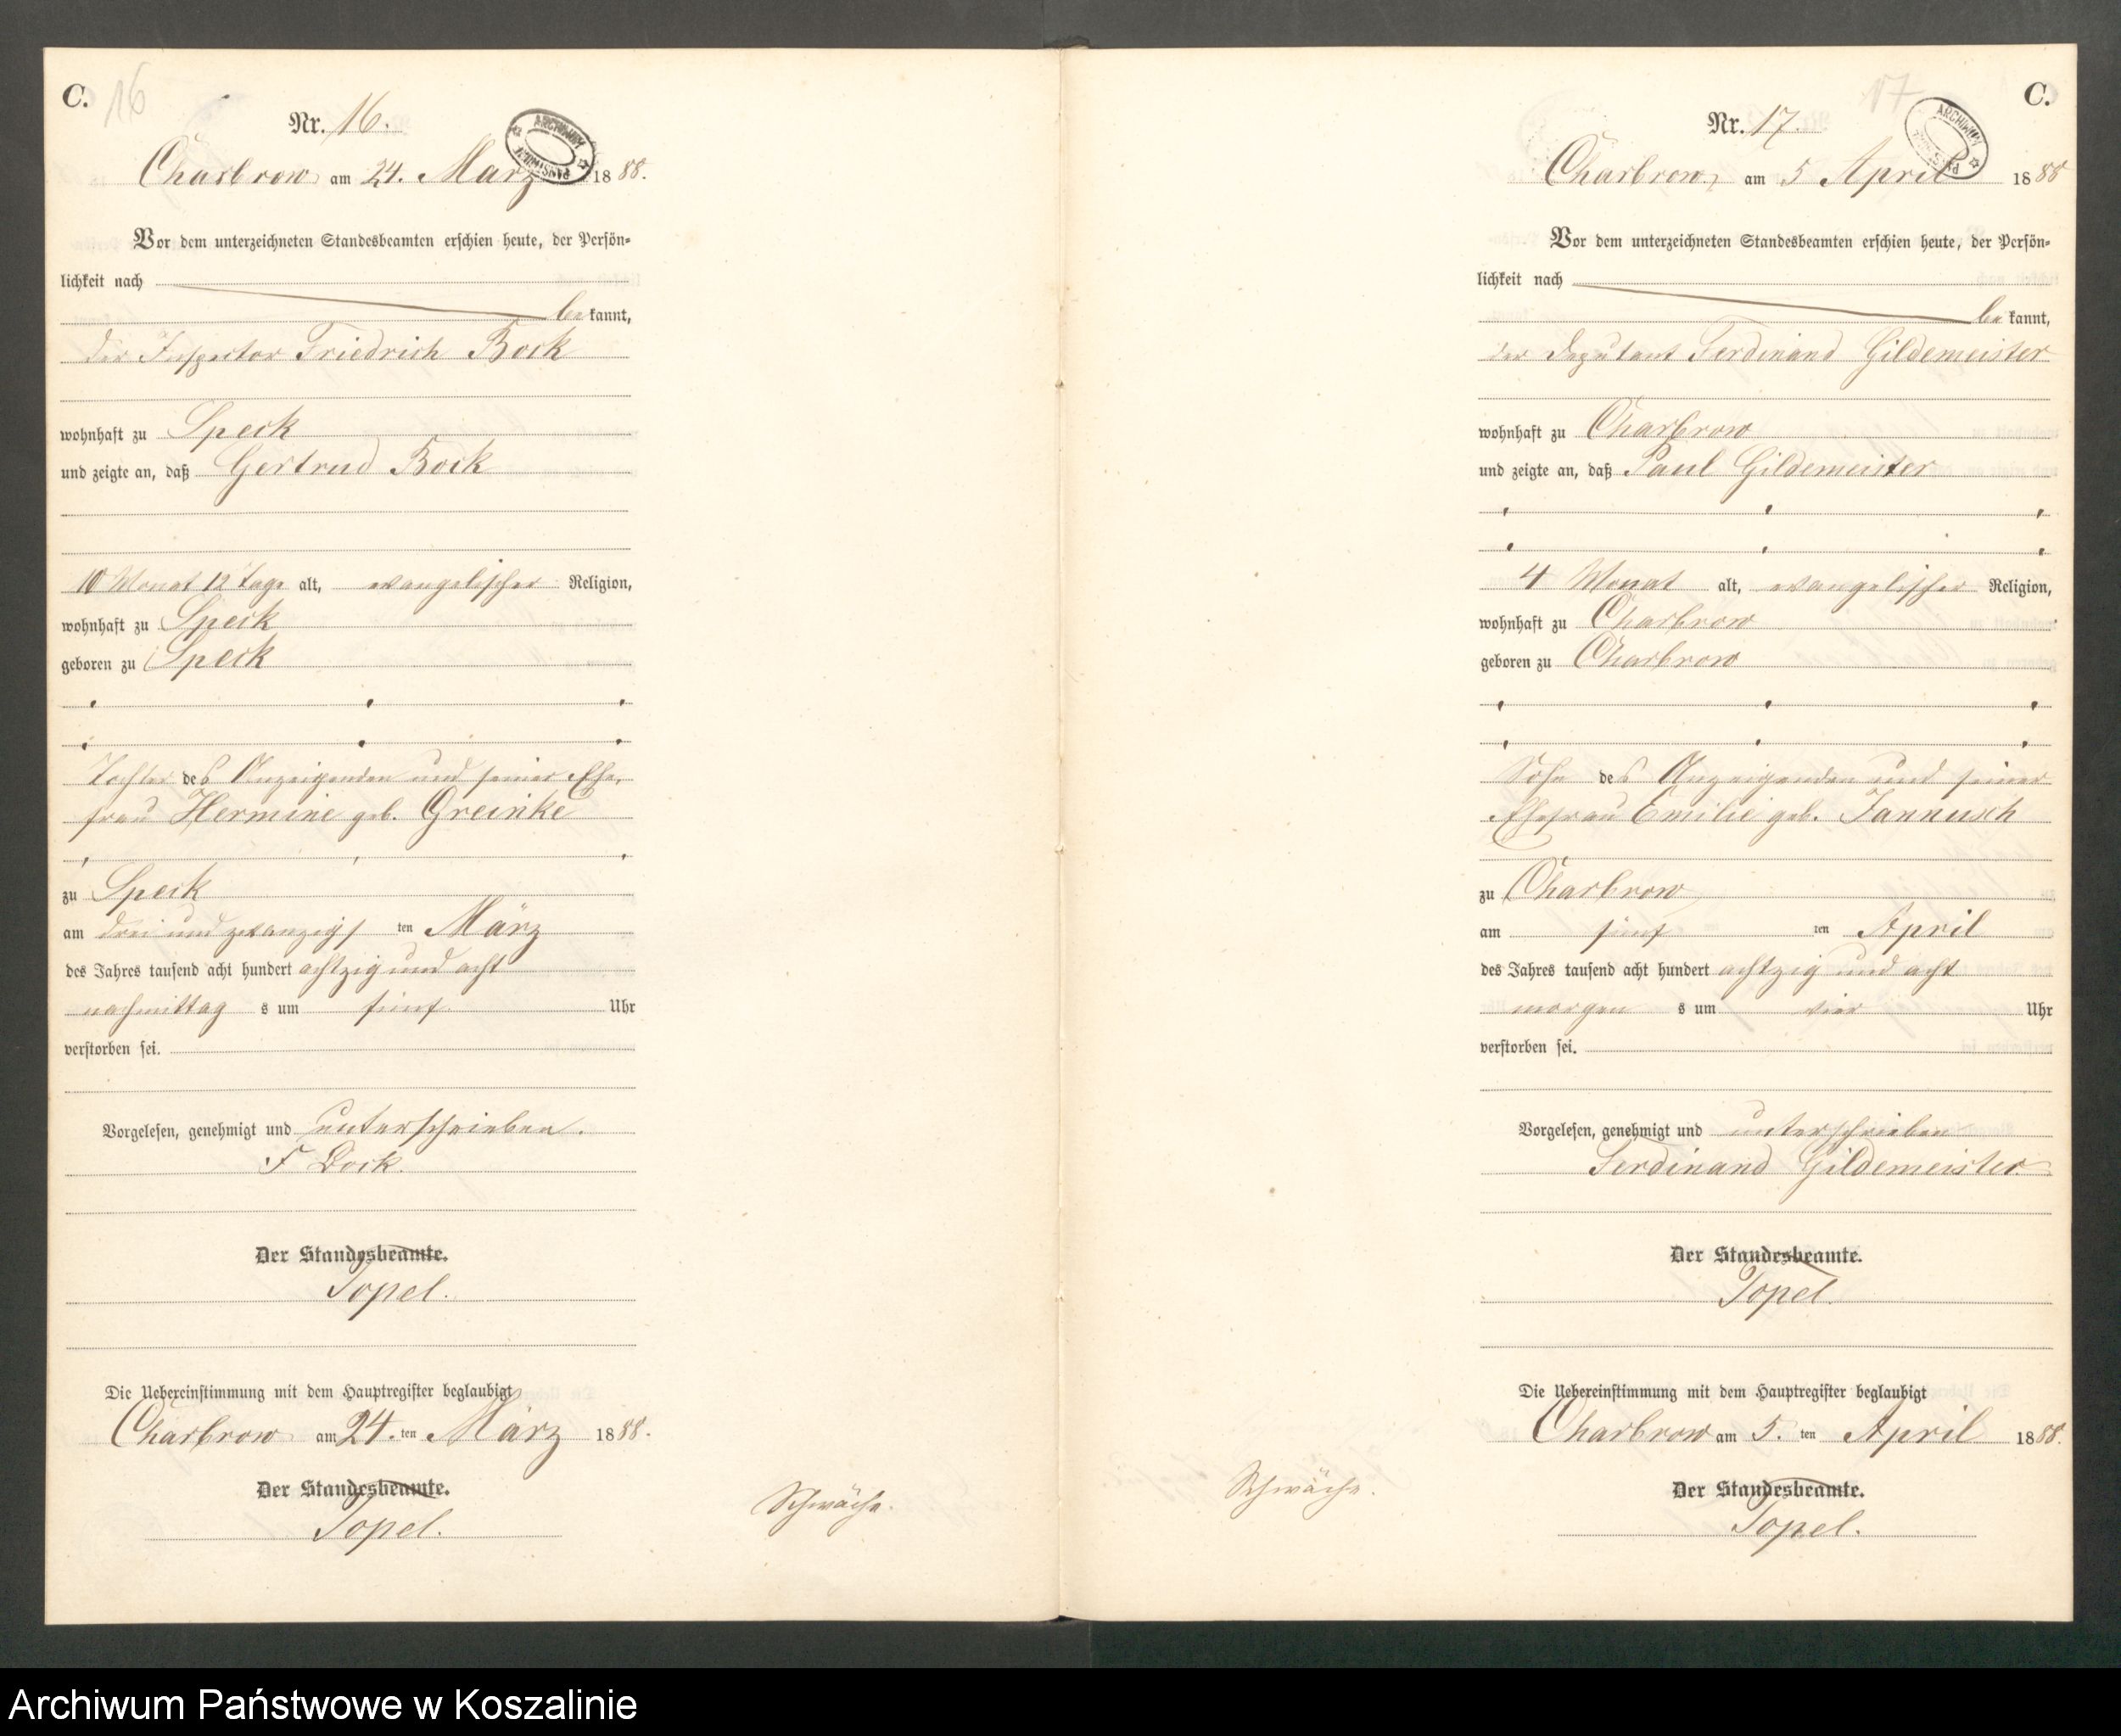 C.
16
Nr. 16.
ARCHIWUM PAŃSTWOWE
Charbrow am 24. März 1888.
Vor dem unterzeichneten Standesbeamten erschien heute, der Persön-
lichkeit nach
bekannt,
der Inspector Friedrich Bock
wohnhaft zu Speck
und zeigte an, daß Gertrud Bock
10 Monat 12 Tage alt, evangelischer Religion,
wohnhaft zu Speck
geboren zu Speck
Tochter des Anzeigenden und seiner Ehe-
frau Hermine geb. Greinke
zu Speck
am drei und zwanzigsten März
des Jahres tausend acht hundert achtzig und acht
nachmittags um fünf Uhr
verstorben sei.
Vorgelesen, genehmigt und unterschrieben.
F Bock.
Der Standesbeamte.
Topel.
Die Uebereinstimmung mit dem Hauptregister beglaubigt
Charbrow am 24.ten März 1888.
Der Standesbeamte.
Topel.
Schwäche.
C.
17
Nr. 17.
ARCHIWUM
Charbrow, am 5 April 1888
Vor dem unterzeichneten Standesbeamten erschien heute, der Persön-
lichkeit nach
bekannt,
der Deputant Ferdinand Gildemeister
wohnhaft zu Charbrow
und zeigte an, daß Paul Gildemeister
4 Monat alt, evangelischer Religion,
wohnhaft zu Charbrow
geboren zu Charbrow
Sohn des Anzeigenden und seiner
Ehefrau Emilie geb. Jannusch
zu Charbrow
am fünften April
des Jahres tausend acht hundert achtzig und acht
morgens um vier Uhr
verstorben sei.
Vorgelesen, genehmigt und unterschrieben
Ferdinand Gildemeister
Der Standesbeamte.
Topel.
Die Uebereinstimmung mit dem Hauptregister beglaubigt
Charbrow am 5. ten April 1888.
Der Standesbeamte.
Topel.
Schwäche.
Archiwum Państwowe w Koszalinie